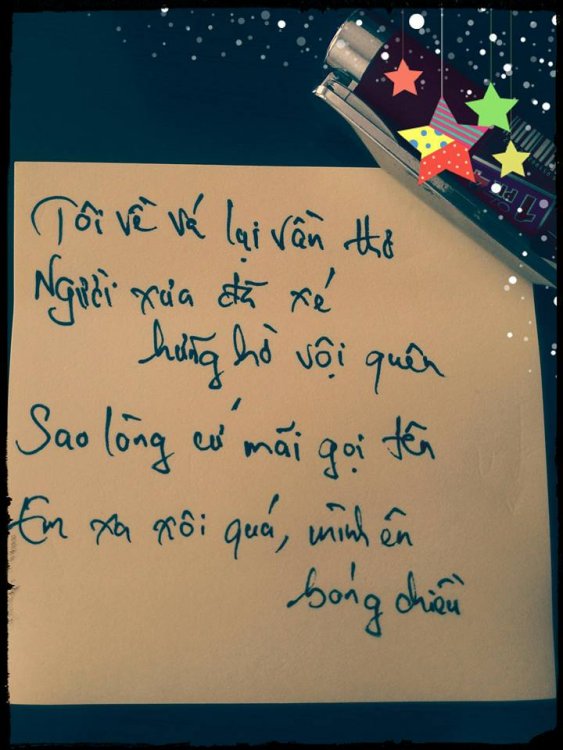 Tôi về vá lại vần thơ
Người xưa đã xé
hững hờ vội quên
Sao lòng cứ mãi gọi tên
Em xa xôi quá, mình ên
bóng chiều